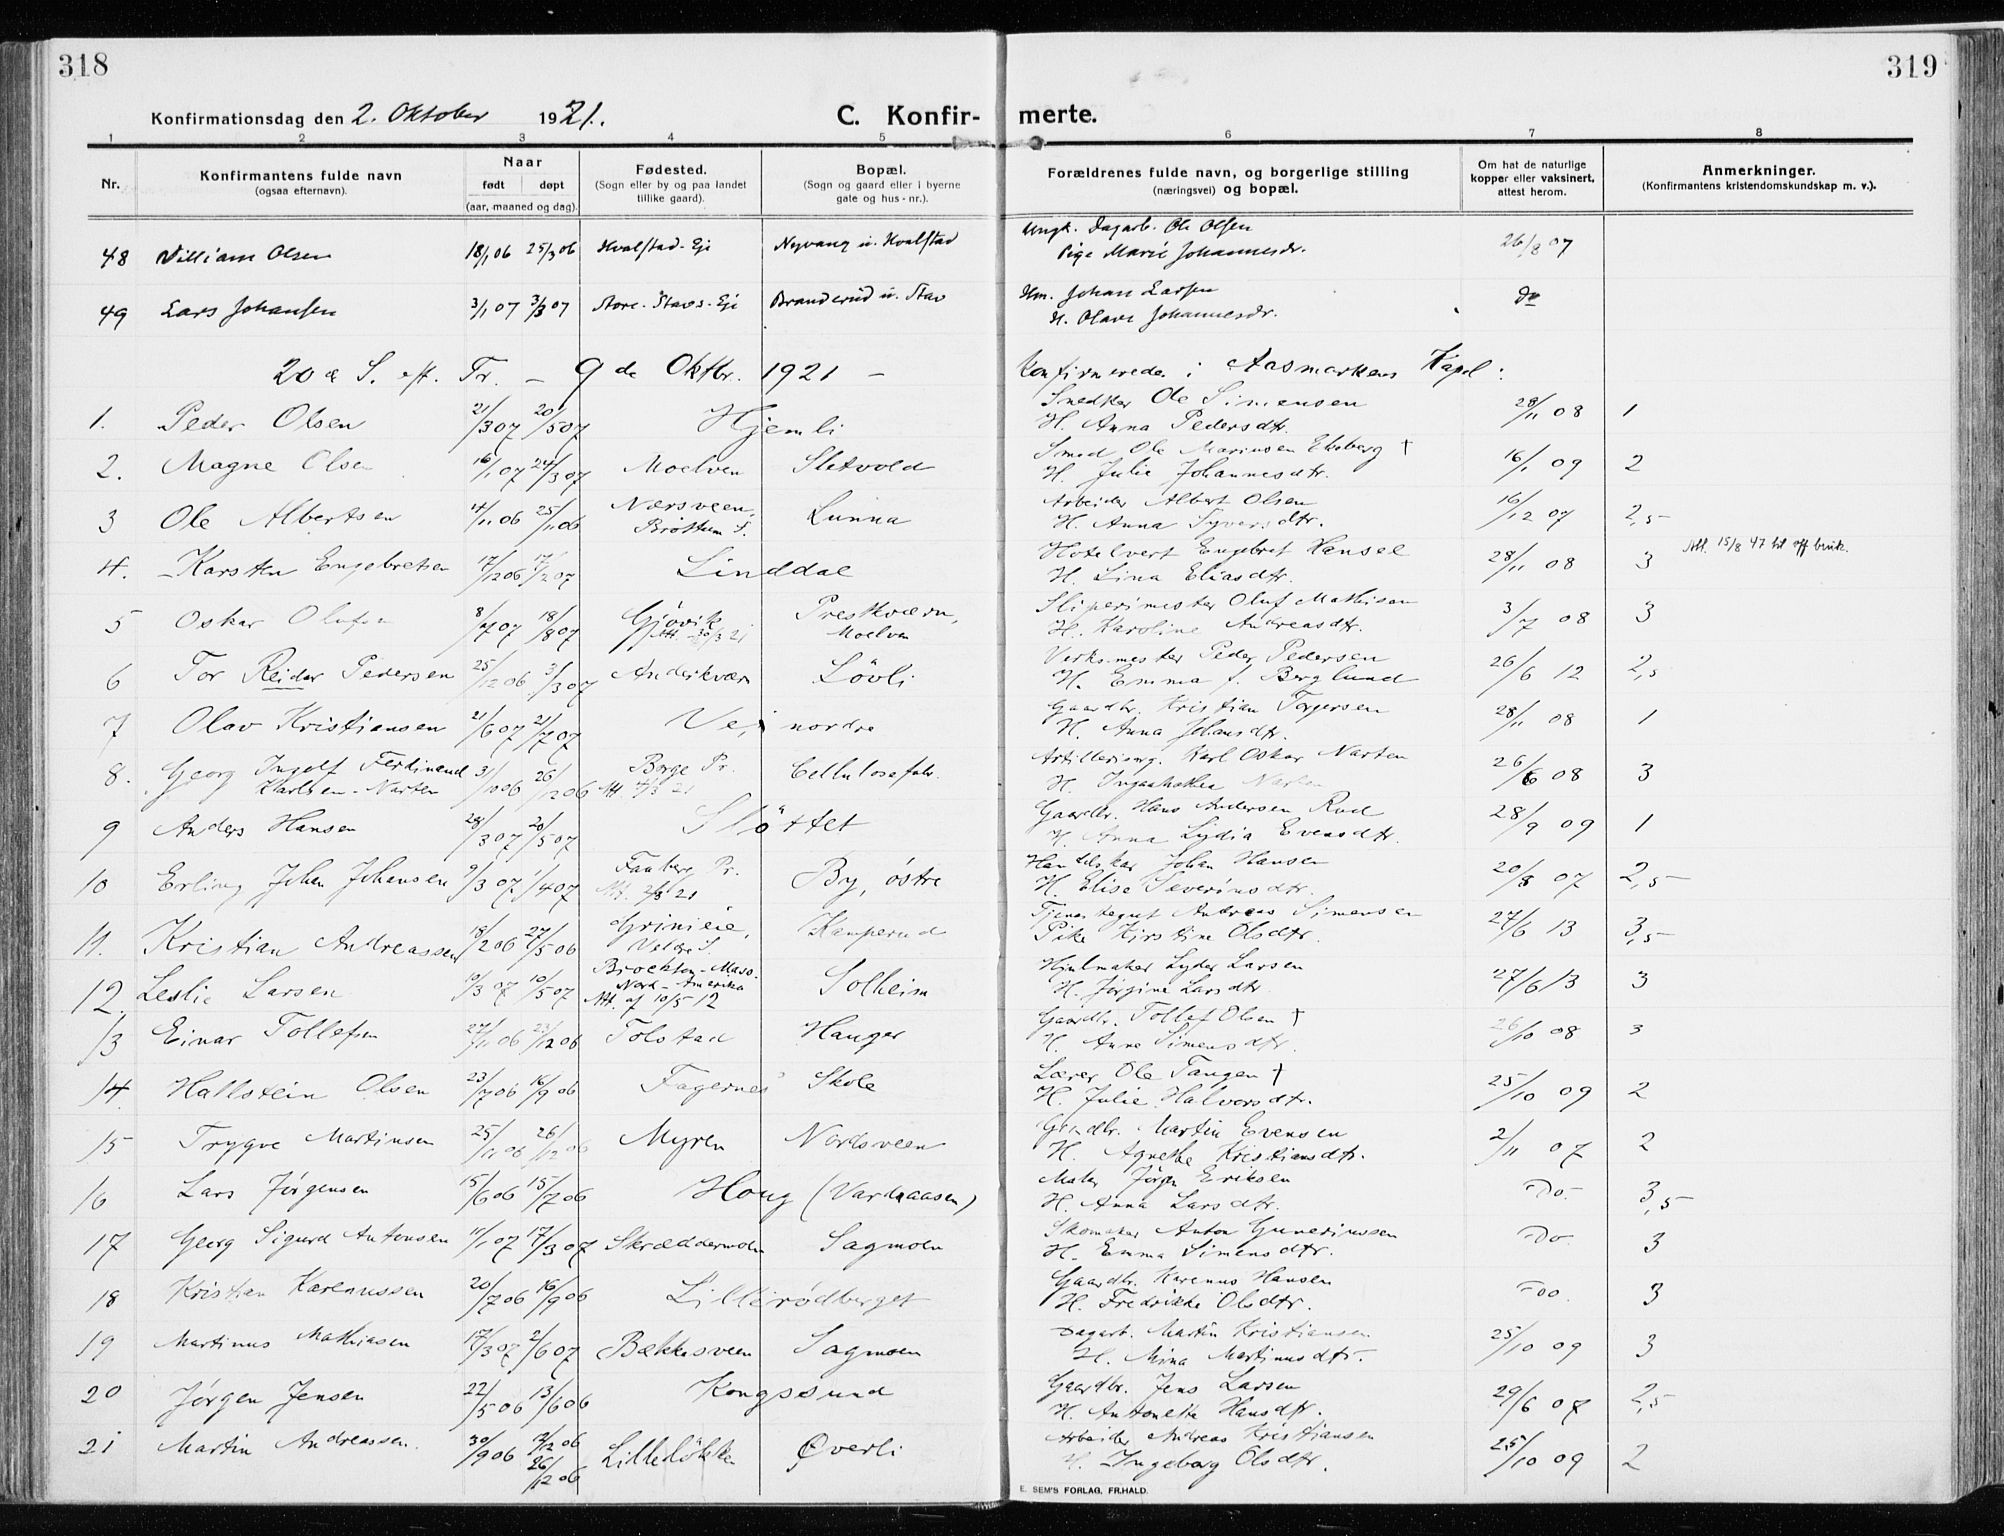 318
319
Konfirmationsdag den 2. Oktober 1921.
C. Konfir- merte.
1 2 3 4 5 6 7 8
Nr.
Konfirmantens fulde navn
(ogsaa efternavn).
Naar
født døpt
(aar, maaned og dag).
Fødested.
(Sogn eller by og paa landet
tillike gaard).
Bopæl.
(Sogn og gaard eller i byerne
gate og hus-nr.).
Forældrenes fulde navn, og borgerlige stilling
(næringsvei) og bopæl.
Om hat de naturlige
kopper eller vaksinert,
attest herom.
Anmerkninger.
(Konfirmantens kristendomskundskap m. v.).
Ungk. Dagarb. Ole Olsen
48 Villiam Olsen 18/1 06 25/3 06 Hvalstad-Eje Nyvang u. Hvalstad Pige Marie Johannesdr. 26/8 07
Hm. Johan Larsen
49 Lars Johansen 3/1 07 3/3 07 Store-Stavs-Eje Branderud u. Stav H. Olava Johannesdr. Do
20de S. eft. Tr. – 9de Oktbr. 1921 – Konfirmerede i Aasmarkens Kapel:
Snedker Ole Simensen
1. Peder Olsen 21/3 07 20/5 07 Hjemli H. Anna Pedersdtr. 28/11 08 1
Smed Ole Marinsen Ekeberg †
2. Magne Olsen 16/1 07 24/3 07 Moelven Sletvold H. Julie Johannesdtr. 16/1 09 2
Arbeider Albert Olsen
3 Ole Albertsen 4/11 06 25/11 06 Nærsveen, Brøttum S. Lunna H. Anna Syversdtr. 16/12 07 2,5
Hotelvert Engebret Hansel
4. Karsten Engebretsen 17/12 06 17/2 07 Linddal H. Lina Eliasdtr. 28/11 08 3 Att. 15/8 47 til off bruk.
Sliperimester Oluf Mathisen
5 Oskar Olufsen 8/7 07 18/8 07 Gjøvik Att. 30/3 21 Prestkværn, Moelven H. Karoline Andreasdtr. 3/7 08 3
Verksmester Peder Pedersen
6 Tor Reidar Pedersen 25/12 06 3/3 07 Anderkvær Løvli H. Emma f. Berglund 26/6 12 2,5
Gaardbr. Kristian Torgersen
7 Olav Kristiansen 21/6 07 21/7 07 Vei nordre H. Anna Johansdtr. 28/11 08 1
Artilleriserg. Karl Oskar Narten
8. Georg Ingolf Ferdinand Karlsen-Narten 31/10 06 26/12 06 Borge Pr. Cellulosefabr. 26/6 08 3
Gaardbr. Hans Andersen Rud
9 Anders Hansen 28/3 07 20/5 07 Sløttet H. Anna Lydia Evensdtr. 28/9 09 1
Handelskar Johan Hansen
10 Erling Johan Johansen 9/3 07 1/4 07 Faaberg Pr. By, østre H. Elise Severinsdtr. 20/8 07 2,5
Tjenestegut Andreas Simensen
11. Kristian Andreassen 18/2 06 27/5 06 Grinieie, Veldre S. Kamperud Pike Kirstine Olsdtr. 27/6 13 3,5
Hjulmaker Lyder Larsen
12 Leslie Larsen 10/3 07 10/5 07 Brockton-Mass. Nord-Amerika Att. af 10/5 12 Solheim H. Jørgine Larsdtr. 27/6 13 3
Gaardbr. Tollef Olsen †
13 Einar Tollefsen 27/11 06 23/12 06 Tolstad Hanger H. Anne Simensdtr. 26/10 08 3
Lærer Ole Tangen †
14 Hallstein Olsen 23/7 06 16/9 06 Fagernes Skole H. Julie Halversdtr. 25/10 09 2
Martin Evensen
15 Trygve Martinsen 25/11 06 26/12 06 Myren Nordsveen H. Agnethe Kristiansdtr. 2/11 07 2
Maler Jørgen Eriksen
16 Lars Jørgensen 15/6 06 15/7 06 Houg (Vardeaasen) H. Anna Larsdtr. Do. 3,5
Skomaker Anton Gunerinssen
17 Georg Sigurd Antonsen 11/1 07 17/3 07 Skræddermoen Sagmoen H. Emma Simensdtr. Do. 3
Gaardbr. Karenus Hansen
18 Kristian Karenussen 20/7 06 16/9 06 Lillerødberget H. Fredrikke Olsdtr. Do. 3
Dagarb. Martin Kristiansen
19 Martinus Mathiasen 17/3 07 2/6 07 Bækkesveen Sagmoen H. Mina Martinusdtr. 25/10 09 3
Gaardbr. Jens Larsen
20 Jørgen Jensen 22/5 06 13/6 06 Kongssund H. Antonette Hansdtr. 29/6 07 2,5
Arbeider Andreas Kristiansen
21 Martin Andreassen. 30/9 06 26/12 06 Lilleløkken Øverli H. Ingeborg Olsdtr. 25/10 09 2
E. SEM'S FORLAG, FR.HALD.